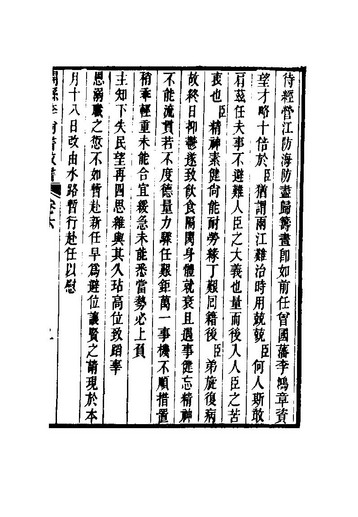 待經營江防海防盡歸籌畫即如前任曾國藩李鴻章資
望才略十倍於臣猶謂兩江難治時用兢兢臣何人斯敢
肩茲任夫事不避難人臣之大義也量而後入人臣之苦
衷也臣精神素健尙能耐勞緣丁艱回籍後臣弟旋復病
故終日抑鬱遂致飲食隔閡身體就衰且遇事健忘精神
不能流貫若不度德量力驟任艱鉅萬一事機不順措置
稍乖輕重未能合宜緩急未能悉當勢必上負
主知下失民望再四思維與其久玷高位致蹈辜
恩溺職之愆不如暫赴新任早爲避位讓賢之請現於本
月十八日改由水路暫行赴任以慰
開縣李尙書政書
卷六